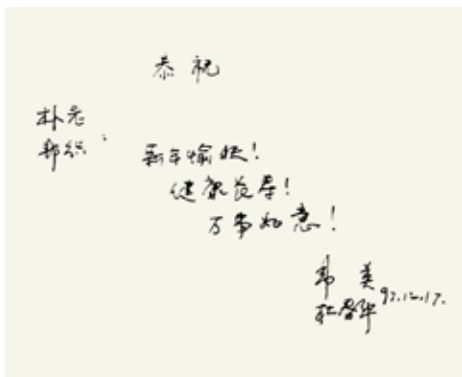 恭祝
朴老
新年愉快!
健康长寿!
万事如意!
韦 美
97.12.17.